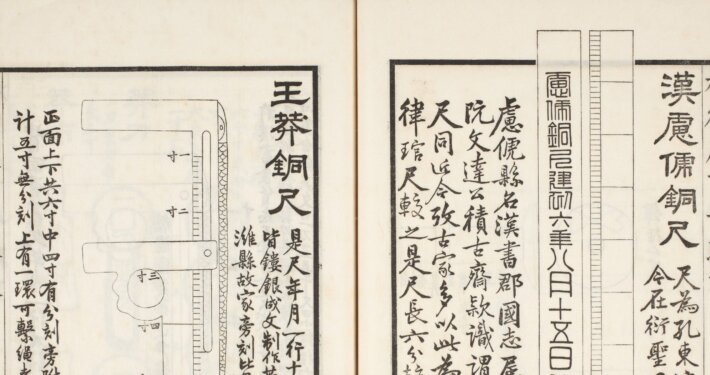 漢慮俿銅尺
尺為孔東
今在衍聖
慮俿銅尺建初六年八月十五日
慮俿縣名漢書郡國志屬
阮文達公積古齋款識謂
尺同近今攷古家多以此為
律琯尺較之是尺長六分
王莽銅尺
是尺年月一行十
皆鏤銀成文制作
濰縣故家旁刻比
一寸
二寸
三寸
四
正面上下共六寸中四寸有分刻旁
計五寸無分刻上有一環可繫繩